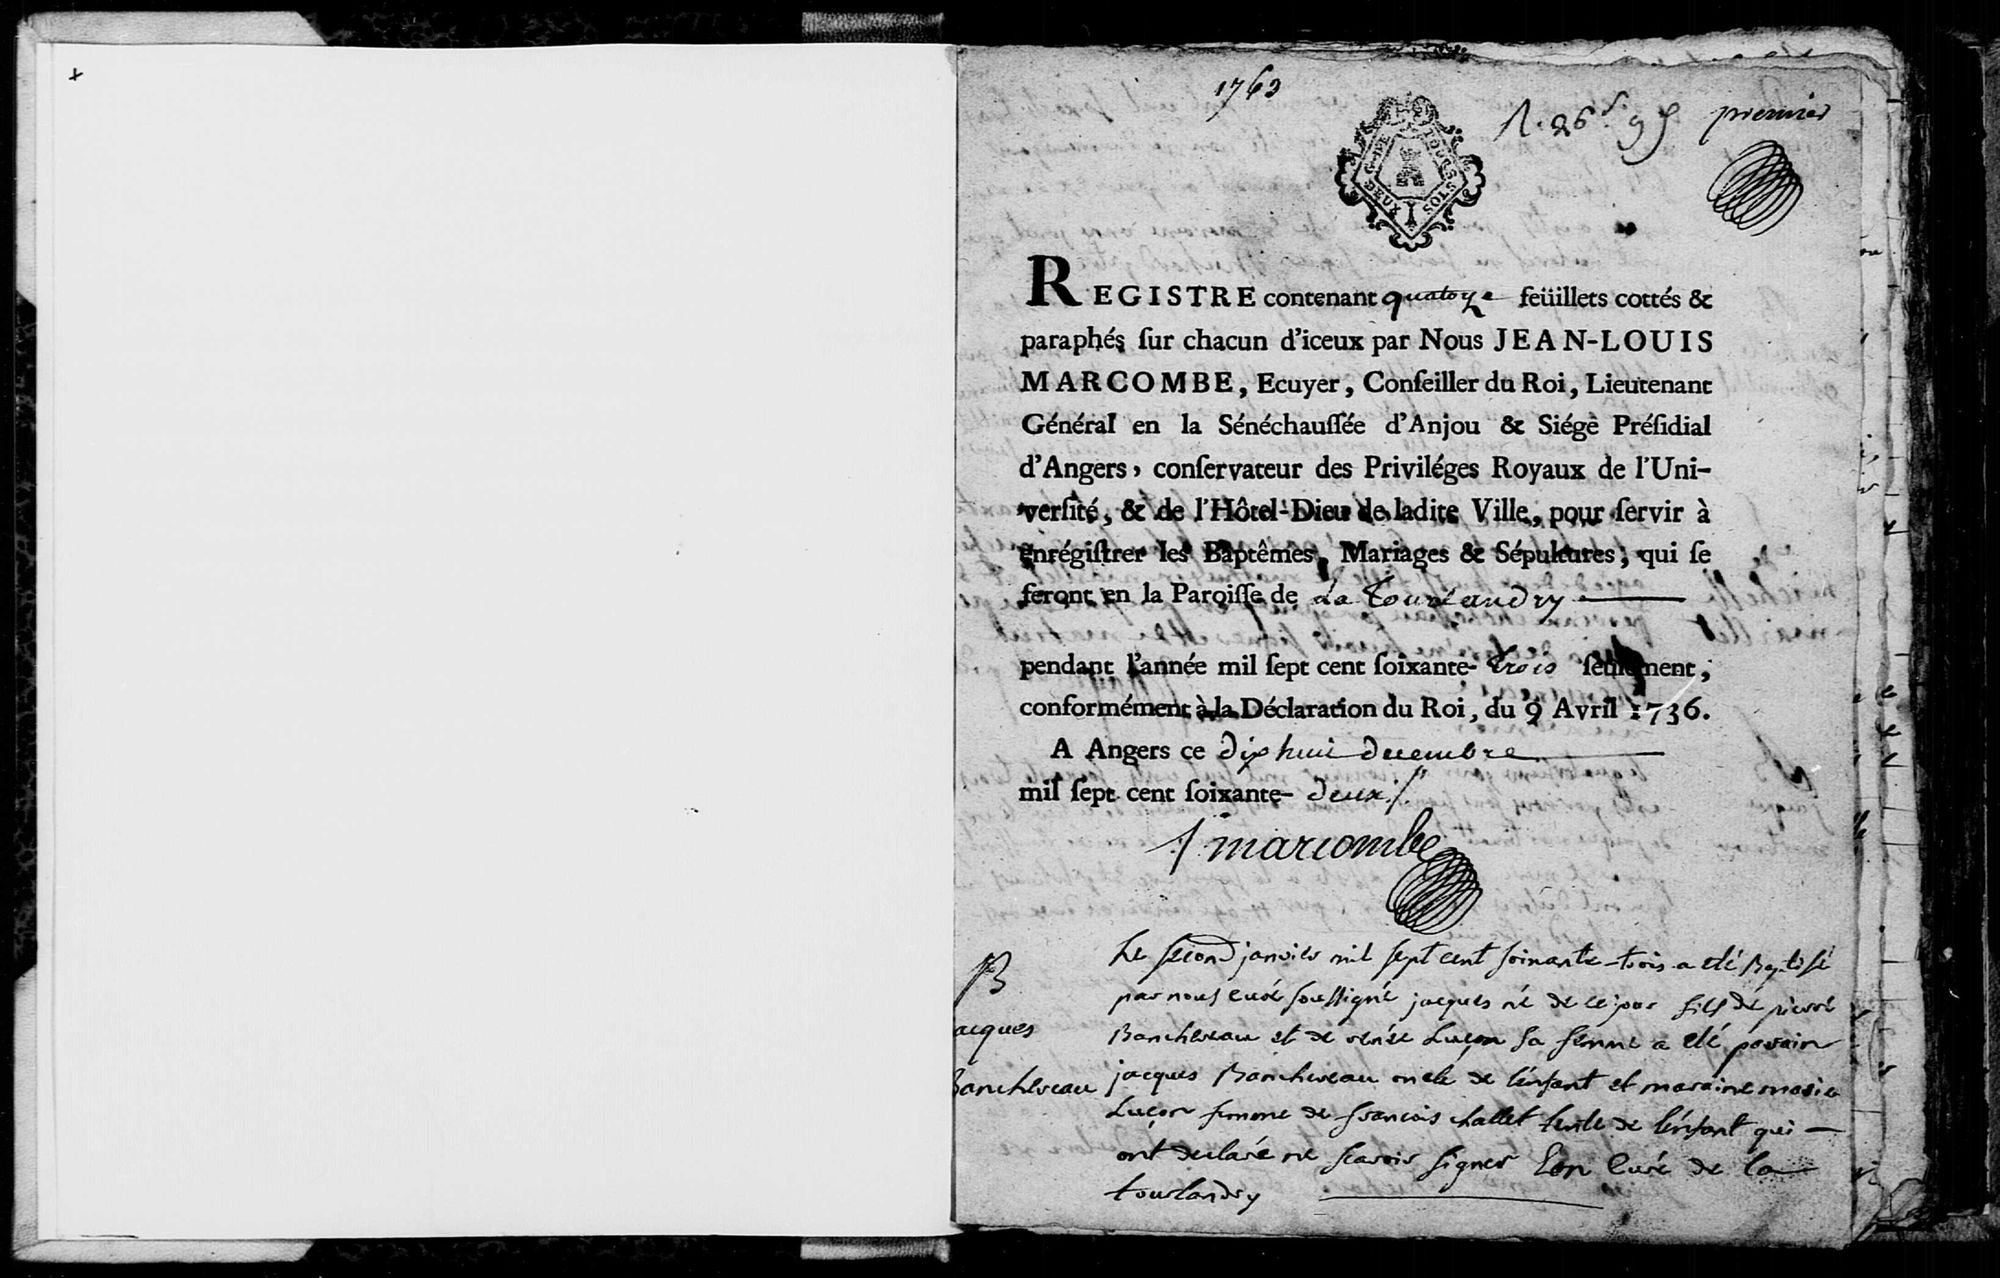 1763
premier
G. DE TOURS
DEUX SOLS
REGISTRE contenant quatorze feüillets cottés &
paraphés ſur chacun d'iceux par Nous JEAN-LOUIS
MARCOMBE, Ecuyer, Conſeiller du Roi, Lieutenant
Général en la Sénéchauſſée d'Anjou & Siégè Préſidial
d'Angers, conſervateur des Priviléges Royaux de l'Uni-
verſité, & de l'Hôtel-Dieu de ladite Ville, pour ſervir à
enrégiſtrer les Baptêmes, Mariages & Sépultures, qui ſe
feront en la Paroiſſe de La Tourlandry
pendant l'année mil ſept cent ſoixante- trois ſeulement,
conformément à la Déclaration du Roi, du 9 Avril 1736.
A Angers ce dix huit decembre
mil ſept cent ſoixante- deux
marcombe
B
acques
Banchereau
Le second janvier mil sept cent soixante-trois a eté Baptisé
par nous curé soussigné jacques né de ce jour fils de pierre
Banchereau et de renée Luçon sa femme a eté parain
jacques Banchereau oncle de l'enfant et maraine marie
Luçon femme de francois challet tente de l'enfant qui
ont declaré ne scavoir signer Lon Curé de la
tourlandry